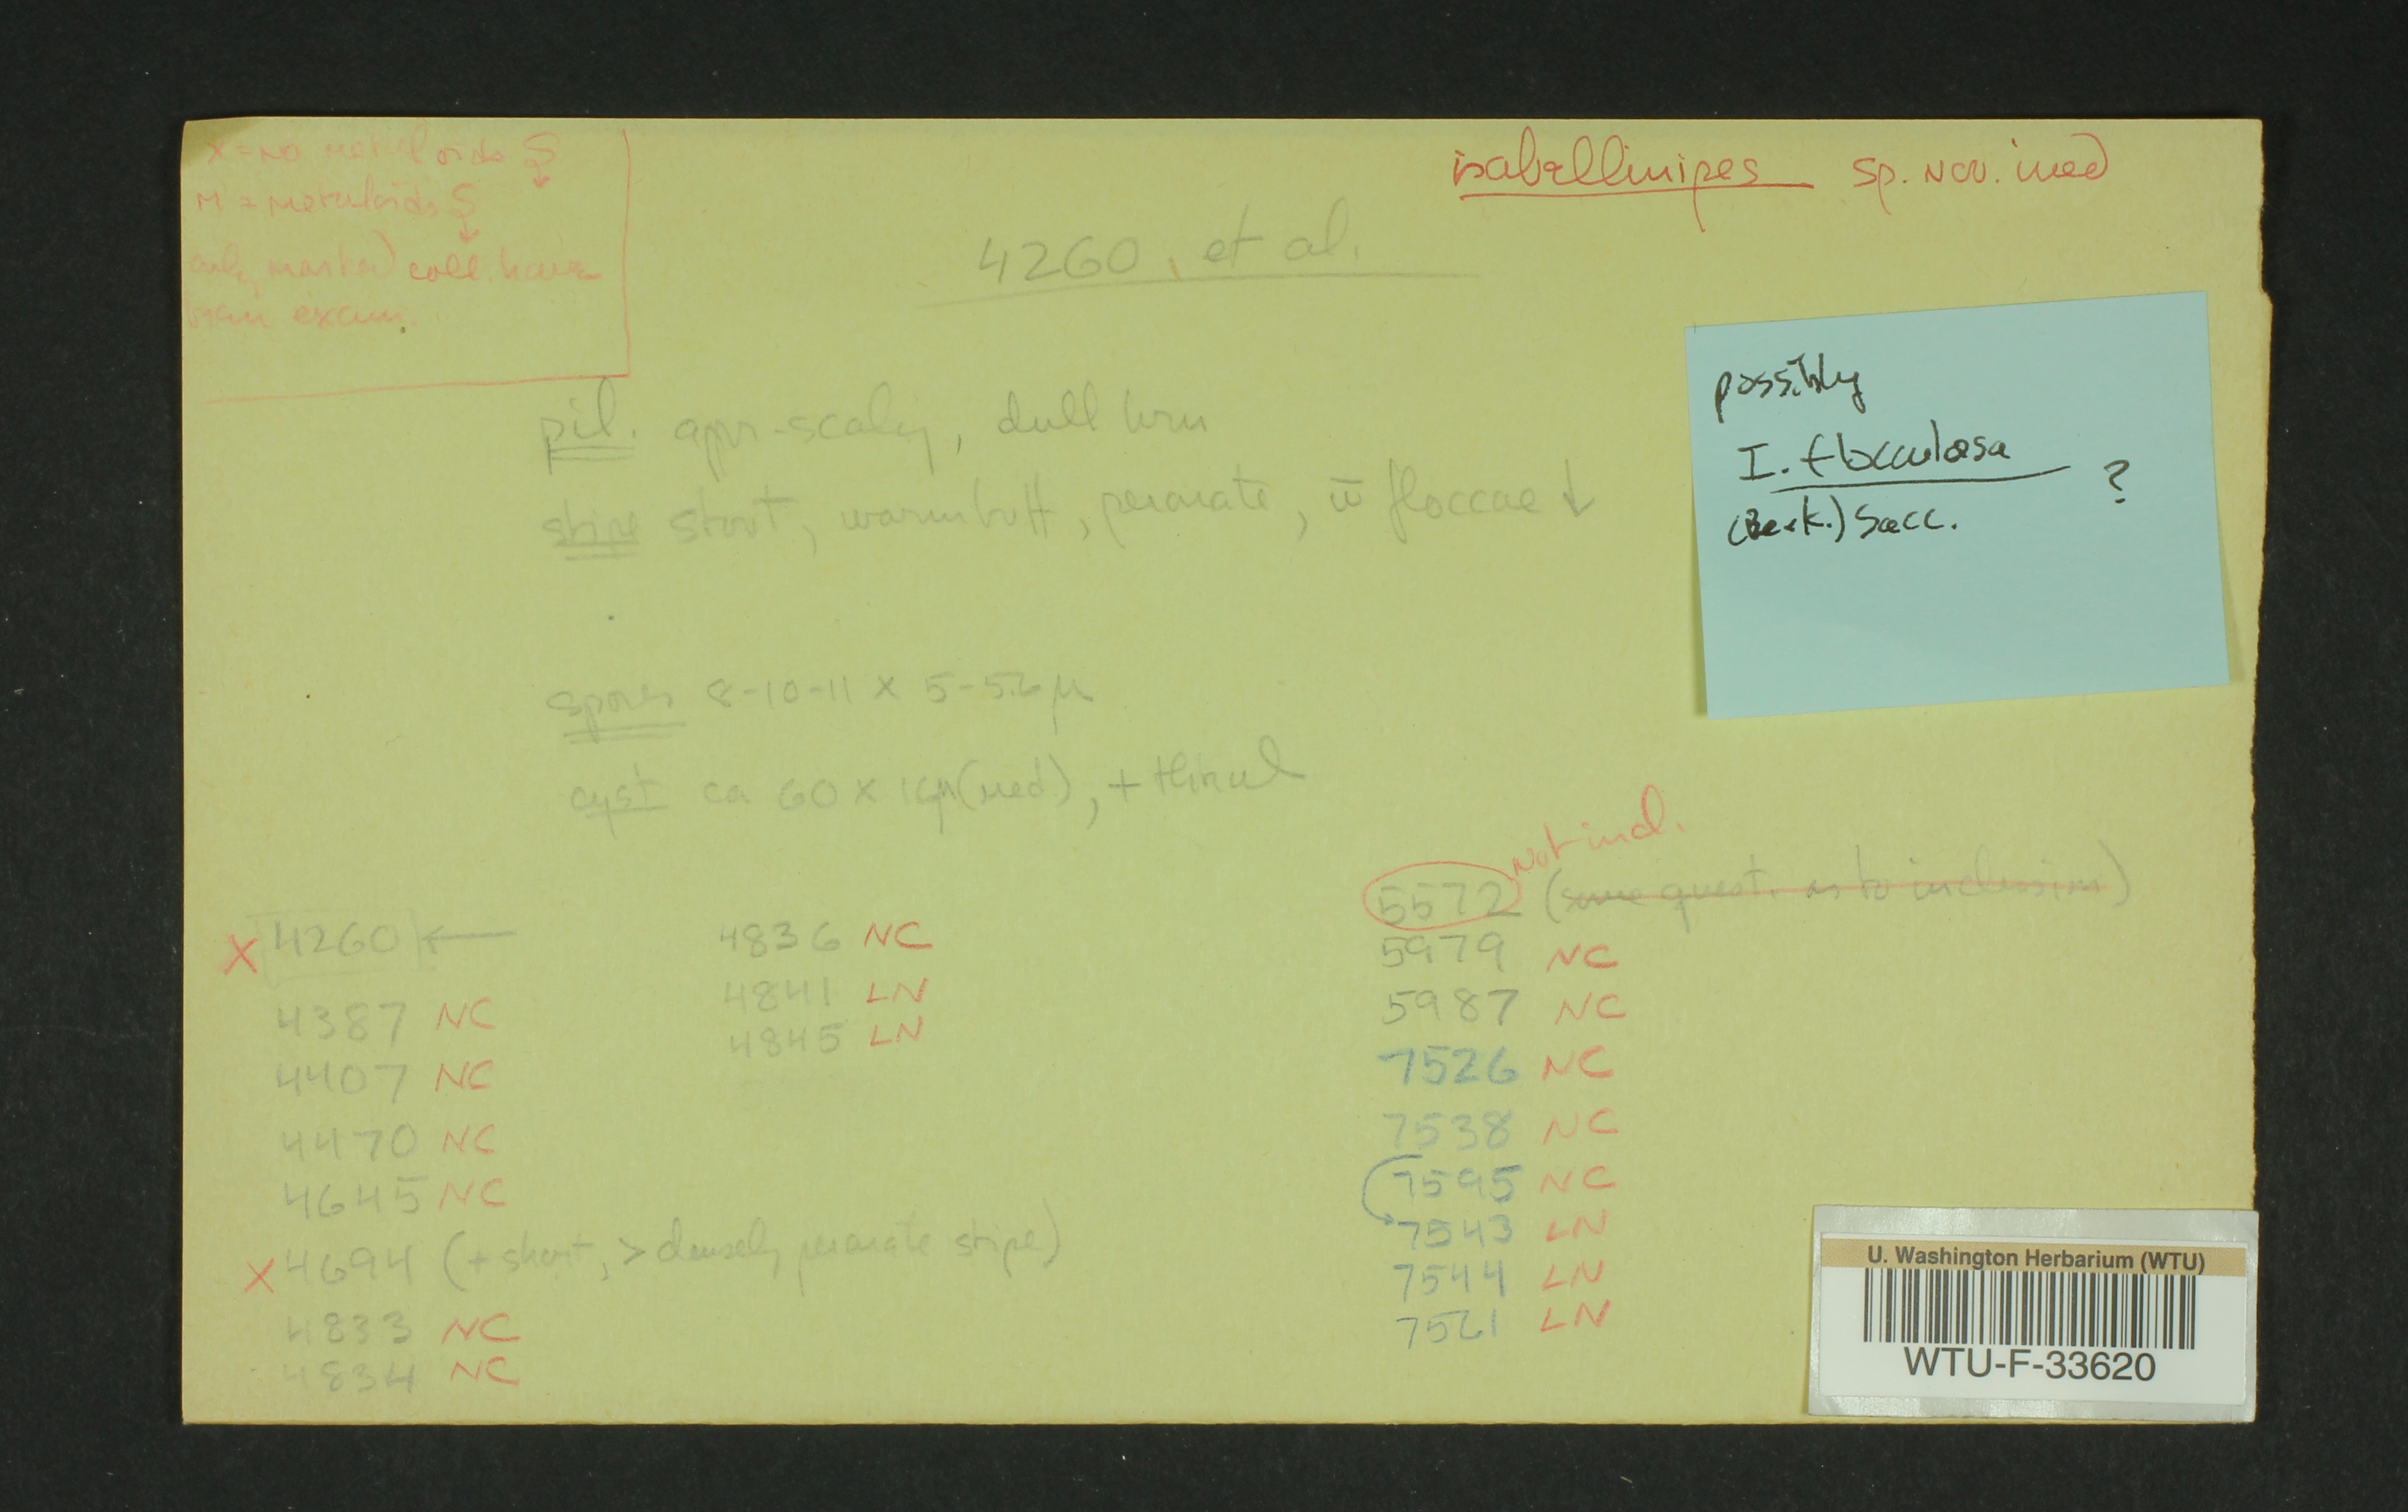 X = no metuloids
M = metuloids
only marked coll. have
been exam.
isabellinipes sp. nov. ined
4260, et al.
pil. appr-scaly, dull brn
stipe stout, warm buff, peronate, w̄ floccae ↓
possibly
I. flocculosa ?
(Berk.) Sacc.
spores 8-10-11 x 5-5.6 µ
cyst ca 60 x 16µ (med.), + thinwl
X 4260 ←
4387 NC
4407 NC
4470 NC
4645 NC
X 4694 (+ short, > densely peronate stipe)
4833 NC
4834 NC
4836 NC
4841 LN
4845 LN
Not incl.
5572 (some quest. as to inclusion)
5979 NC
5987 NC
7526 NC
7538 NC
7595 NC
7543 LN
7544 LN
7521 LN
U. Washington Herbarium (WTU)
WTU-F-33620